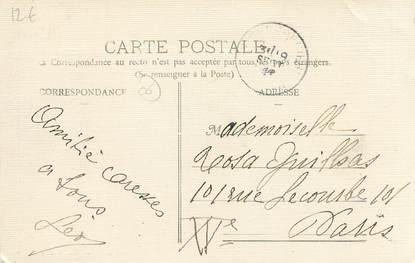 12€
CARTE POSTALE
La Correspondance au recto n'est pas acceptée par tous les pays étrangers.
(Se renseigner à la Poste)
CORRESPONDANCE
ADRESSE
Amitié caresses
a tous
Léo
Mademoiselle
Rosa
101 rue Lecourbe 101
XVe Paris